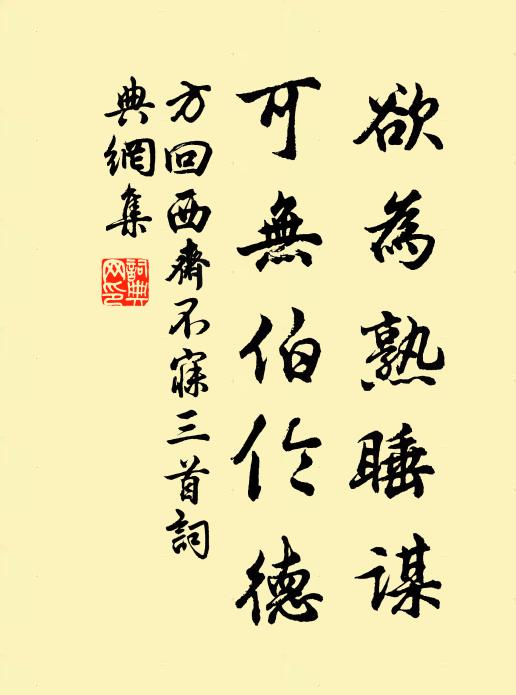 欲為熟睡謀
可無伯伦德
方回西齋不寐三首詞
典網集
詞典網印